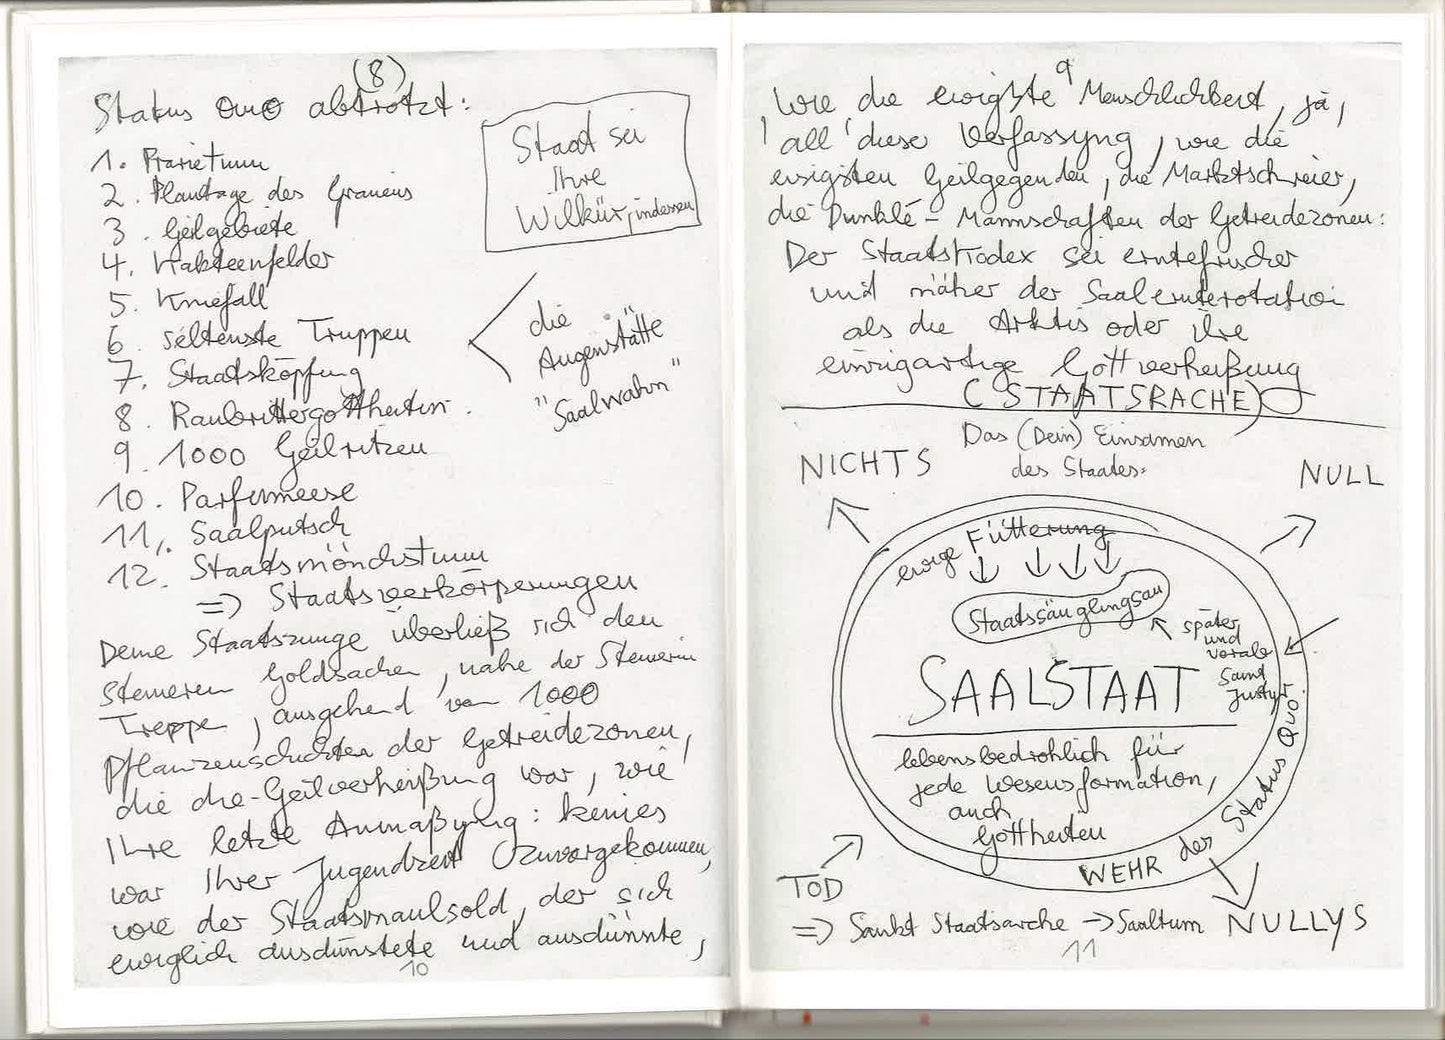 (8)
Status quo abtrotzt:
1. Prärietum
2. Plantage des Grauens
3. Geilgebiete
4. Kakteenfelder
5. Kniefall
6. seltenste Truppen
7. Staatsköpfung
8. Raubrittergottheiten.
9. 1000 Geilritzen
10. Parfümeese
11. Saalputsch
12. Staatsmönchstum
=> Staatsverkörperungen
Staat sei
Ihre
Willkür, indessen
die
Augenstätte
"Saalwahn"
Deine Staatszunge überließ sich den
Steineren Goldsachen, nahe der Steinerin
Treppe, ausgehend von 1000
Pflanzenschichten der Getreidezonen,
die die-Geilverheißung war, wie
Ihre letzte Anmaßung: keines
war Ihrer Jugendzeit zuvorgekommen,
wie der Staatsmaulsold, der sich
ewiglich ausdünstete und ausdünnte,
10
9
wie die ewigste Menschlichkeit, ja,
all' diese Verfassyng, wie die
eisigsten Geilgegenden, die Marktschreier,
die Dunkle-Mannschaften der Getreidezonen:
Der Staatskodex sei erntefrischer
und näher der Saalernterotation
als die Arktis oder Ihre
einzigartige Gottverheißung
(STAATSRACHE)
Das (Dein) Einsamen
des Staates:
NICHTS
NULL
ewige Fütterung
Staatssäuglingsau
später
und
vorab
Samt
SAALSTAAT
lebensbedrohlich für
jede Wesensformation,
auch
Gottheiten
WEHR des Status Quo.
TOD
=> Sankt Staatsarche -> Saaltum
NULLYS
11